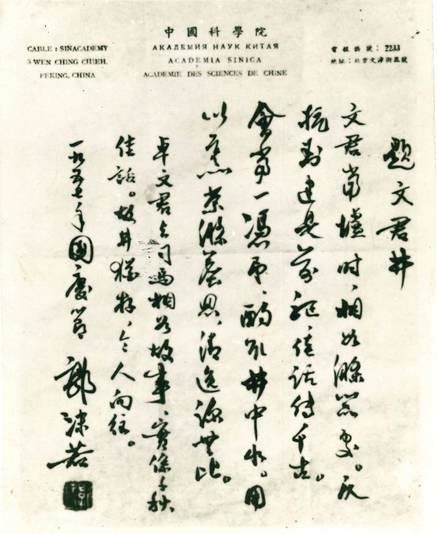 中國科學院
АКАДЕМИЯ НАУК КИТАЯ
ACADEMIA SINICA
ACADEMIE DES SCIENCES DE CHINE
CABLE : SINACADEMY
3 WEN CHING CHIEH,
PEKING, CHINA
電報掛號：2233
地址：北京文津街三號
題文君井
文君當壚時，相如滌器處。反
抗封建是前驅，佳話傳千古。
會當一憑弔，酌取井中水。用
以烹茶滌塵思，清逸凉無比。
卓文君与司馬相如故事，實係千秋
佳話。故井猶存，令人向往。
一九五七年國慶節 郭沫若